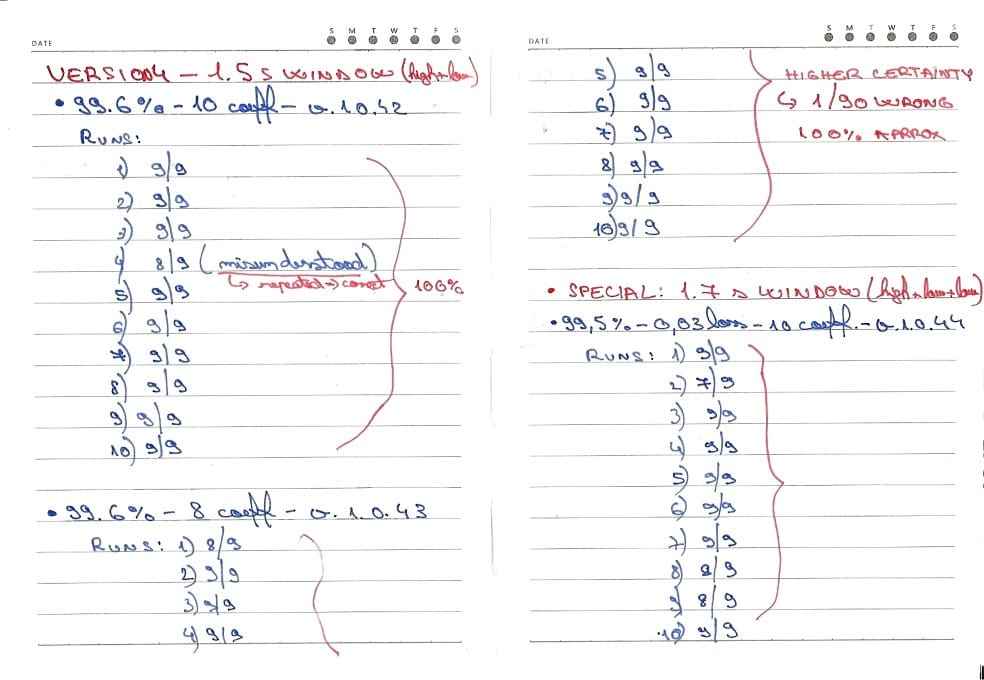 DATE
S M T W T F S
VERSION 4 - 1.5 s WINDOW (high+low)
• 99.6% - 10 coeff - v.1.0.42
RUNS:
1) 9/9
2) 9/9
3) 9/9
4) 8/9 (misunderstood)
↳ repeated → correct
100%
5) 9/9
6) 9/9
7) 9/9
8) 9/9
9) 9/9
10) 9/9
• 99.6% - 8 coeff - v.1.0.43
RUNS: 1) 8/9
2) 9/9
3) 9/9
4) 9/9
DATE
S M T W T F S
5) 9/9
6) 9/9
7) 9/9
8) 9/9
9) 9/9
10) 9/9
HIGHER CERTAINTY
↳ 1/90 WRONG
100% APROX
• SPECIAL: 1.7 s WINDOW (high+low+low)
• 99,5% - 0,03 loss - 10 coeff. - v.1.0.44
RUNS: 1) 9/9
2) 7/9
3) 9/9
4) 9/9
5) 9/9
6) 9/9
7) 9/9
8) /9
9) 8/9
10) 9/9